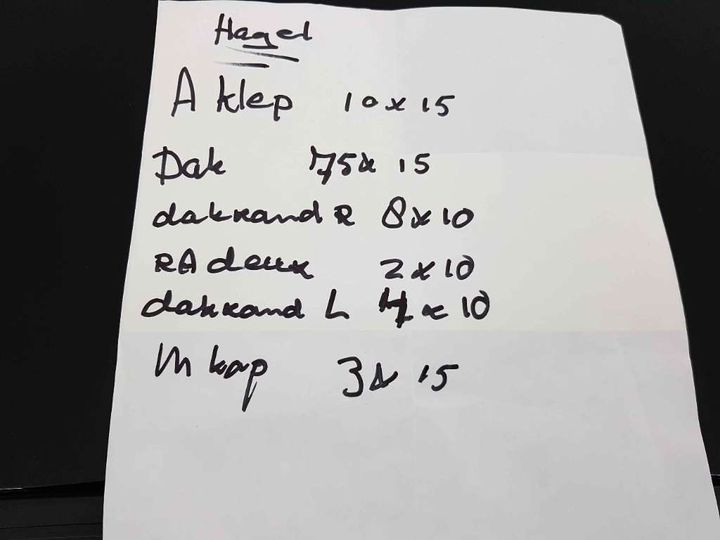 Hagel
A klep 10 x 15
Dak 75 x 15
dakrand R 8 x 10
RA deur 2 x 10
dakrand L 4 x 10
M kap 3 x 15